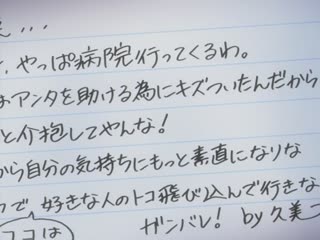 え...
、やっぱ病院行ってくるわ。
アンタを助ける為にキズついたんだから
と介抱してやんな！
から自分の気持ちにもっと素直になりな
で好きな人のトコ飛び込んで行きな
ココは
ガンバレ! by久美